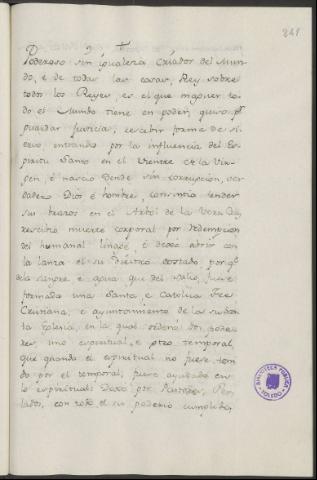 241
Poderoso sin igualeza Criador del Mun-
do, e de todas las cosas, Rey sobre
todos los Reyes, es el que maguer to-
do el Mundo tiene en poder, quiso pr.
guardar justicia, rescebir forma de si-
ervo, entrando por la influencia del Es-
piritu Santo en el Vientre de la Vir-
gen, é nascio dende sin corrupcion, ver
dadero Dios é hombre, consintio tender
sus brazos en el Arbol de la Vera Cruz,
rescibio muerte corporal por redempcion
del humanal linage, é dexó abrir con
la lanza el su diestro costado, por qe.
de la sangre, e agua, que del salio, fuese
formada una Santa, e Catolica Fee
Cristiana, e ayuntamiento de los
la Iglesia, en la qual ordenó dos pode-
res, uno espiritual, e otro temporal,
que quando el espiritual no fuese temi
do por el temporal, fuese ayudado en
lo espiritual: Dexó por Pastores, Per-
lados, con todo el su poderio cumplido,
BIBLIOTECA PUBLICA
TOLEDO